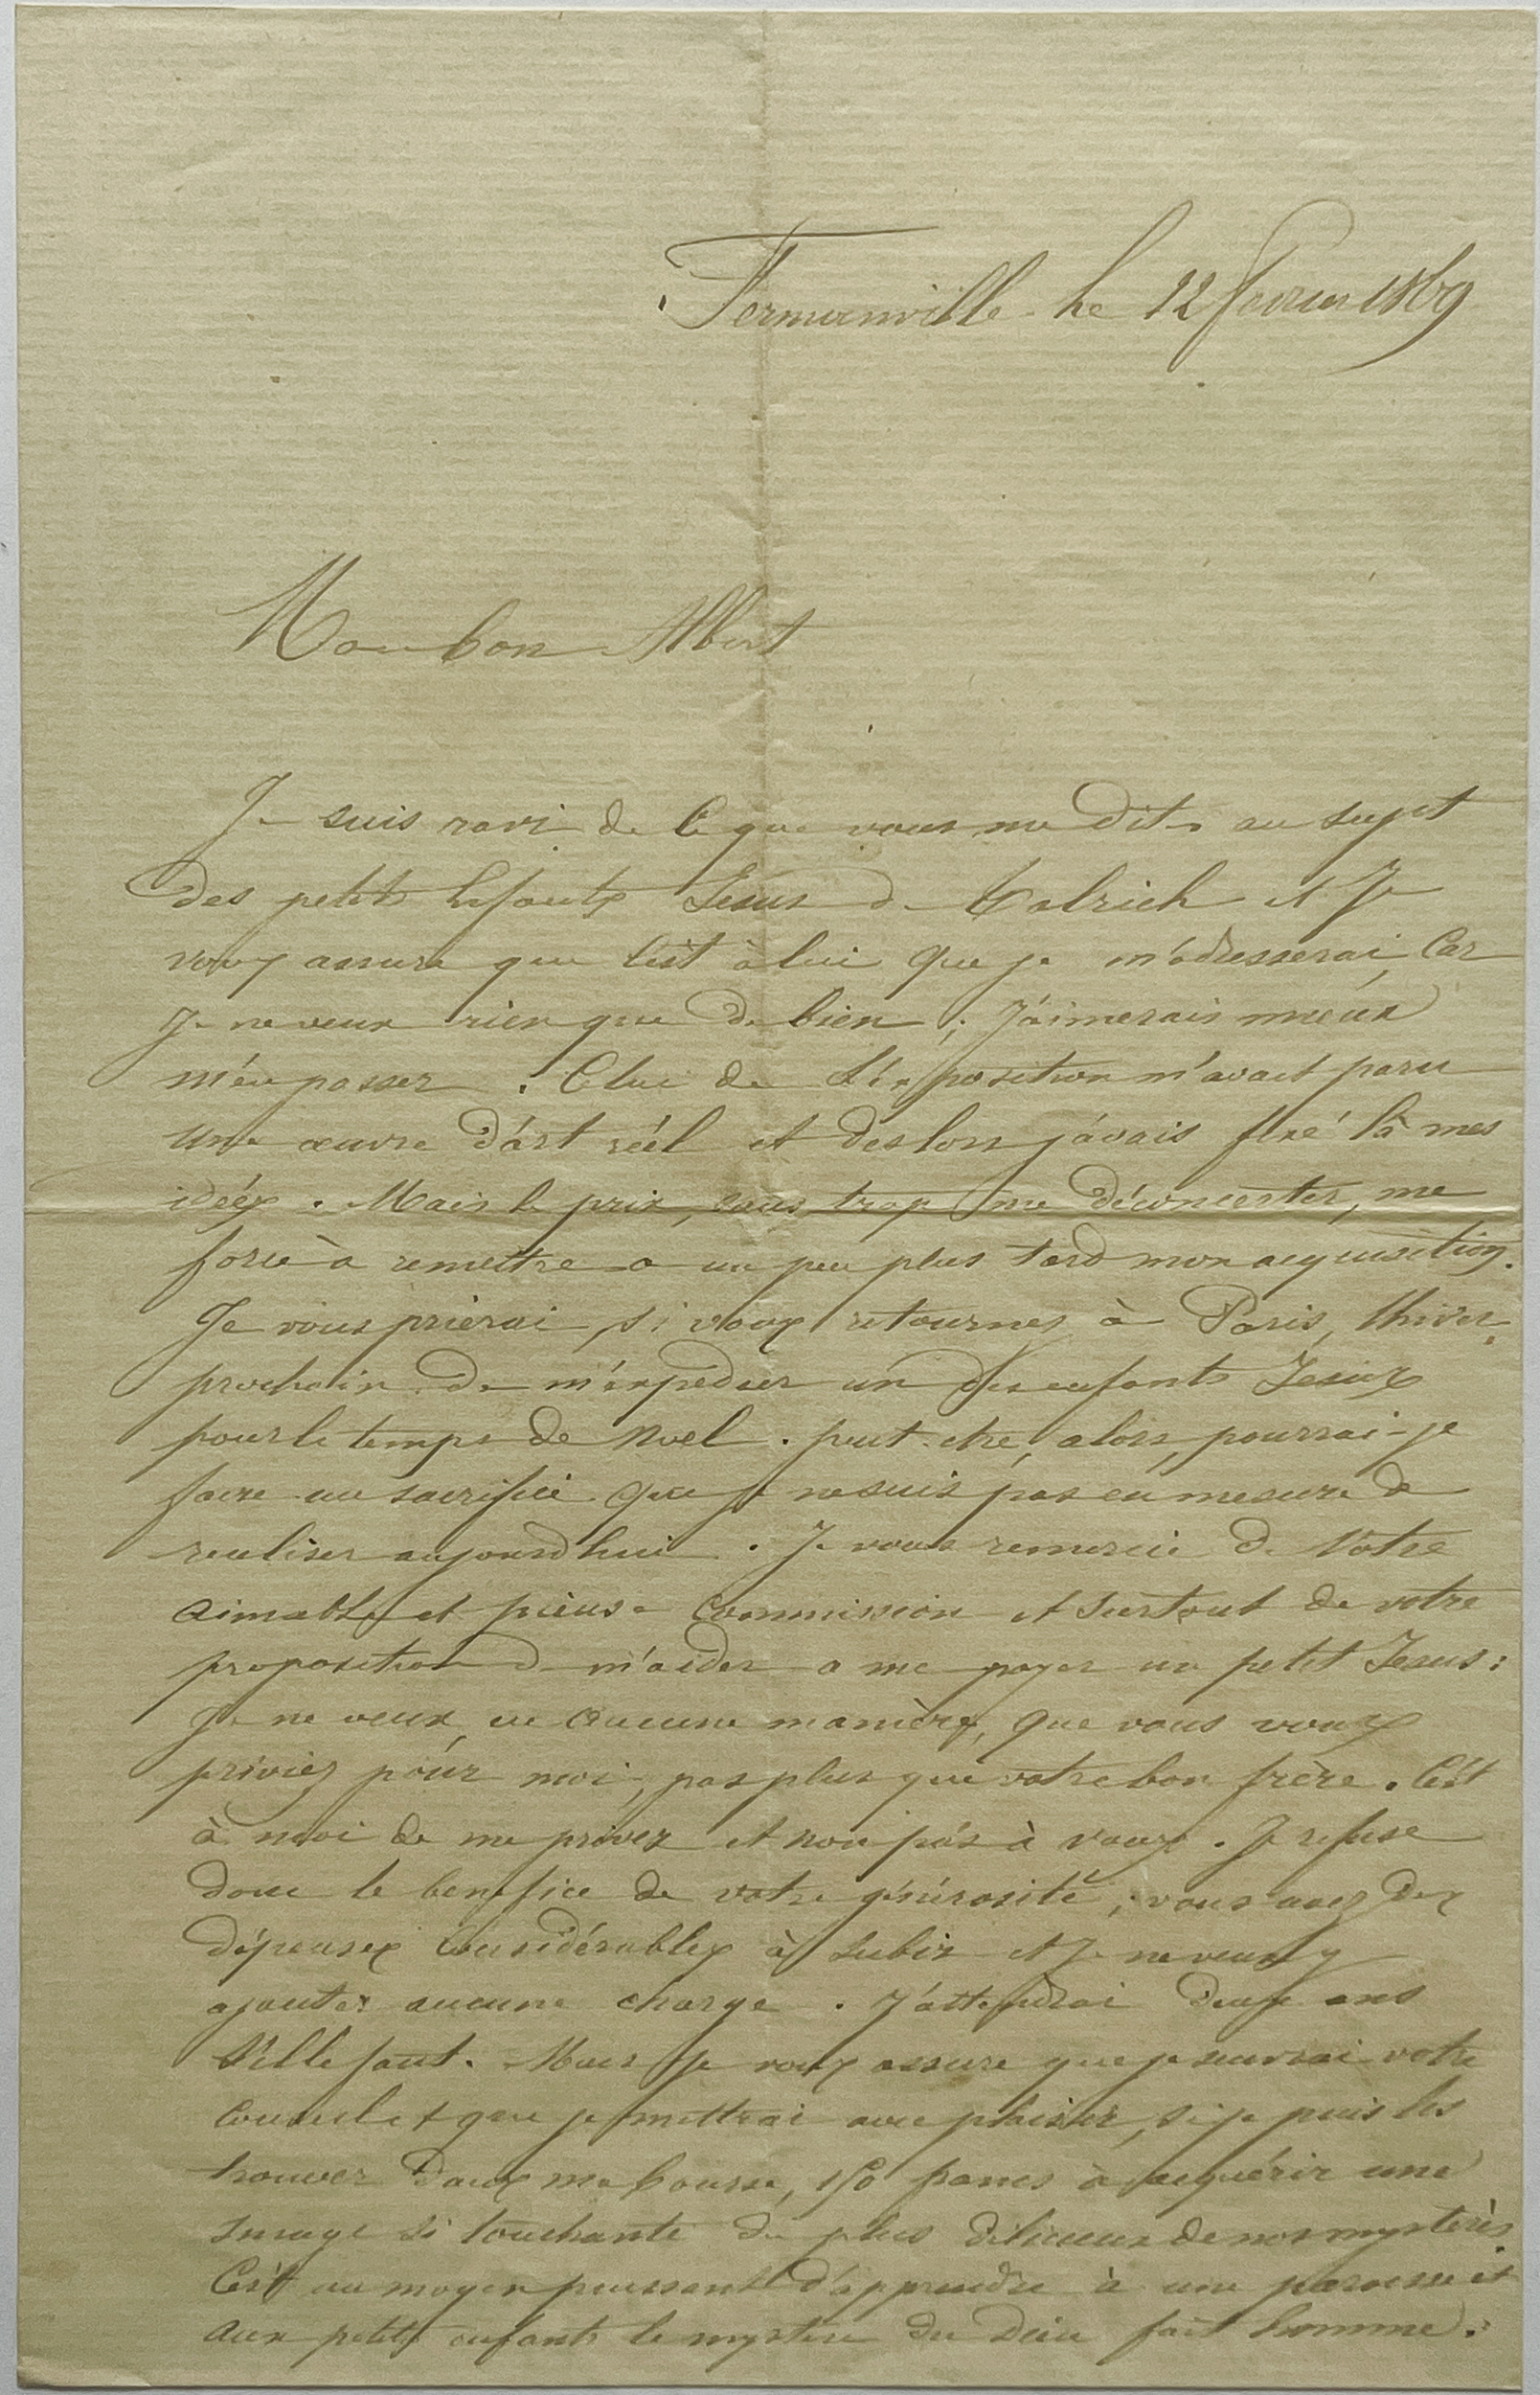 Fermanville le 22 février 1869
Mon bon Albert
Je suis ravi de ce que vous me dites au sujet
des petits Enfants Jesus de et Je
vous assure que c'est à lui que je m'adresserai, car
je ne veux rien que de bien ; j'aimerais mieux
m'en passer . Celui de l'exposition m'avait paru
une œuvre d'art réel et deslors j'avais fixé là mes
idées . Mais le prix, sans trop me déconcerter, me
force à remettre a un peu plus tard mon acquisition.
Je vous prierai, si vous retournez à Paris, l'hiver
prochain de m'expedier un des enfants Jesus
pour le temps de Noel . peut-etre, alors, pourrai-je
faire un sacrifice que je ne suis pas en mesure de
realiser aujourd'hui . Je vous remercie de votre
aimable et pieuse commission et surtout de votre
proposition de m'aider a me payer un petit Jesus :
je ne veux, en aucune manière, que vous vous
priviez pour moi, pas plus que votre bon frère . C'est
à moi de me priver et non pas à vous . Je refuse
donc le benefice de votre générosité ; vous avez des
dépenses considérables à subir et je ne veux y
ajouter aucune charge . J'attendrai deux ans
s'il le faut. Mais je vous assure que je suivrai votre
conseil et que je mettrai avec plaisir, si je puis les
trouver dans ma bourse, 150 francs à acquérir une
image si touchante du plus délicieux de nos mystères.
C'est un moyen puissant d'apprendre à une paroisse et
aux petits enfants le mystère du Dieu fait homme.